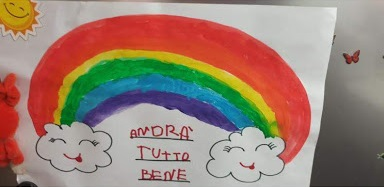 ANDRA'
TUTTO
BENE